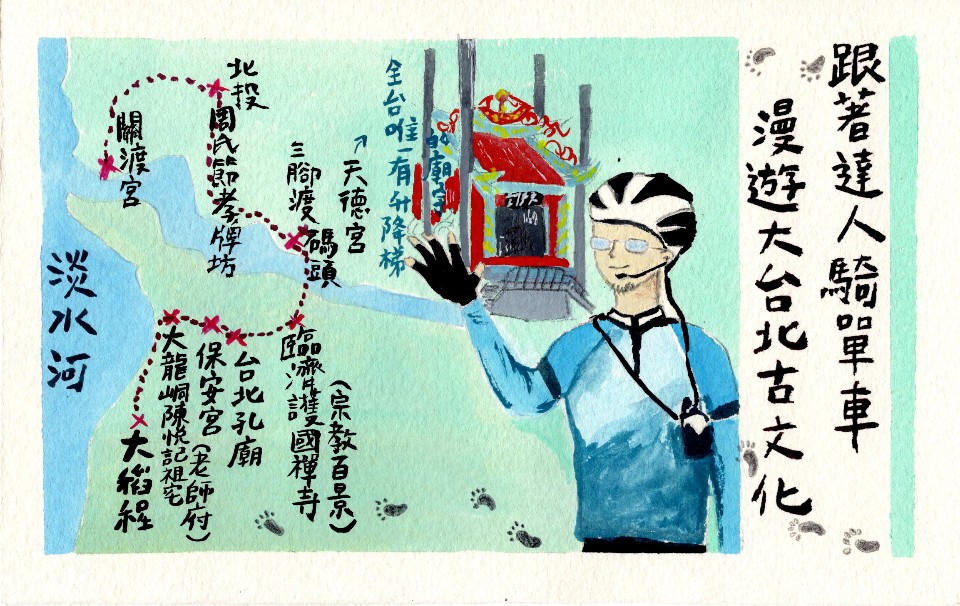 跟著達人騎單車
漫遊大台北古文化
全台唯一有升降梯
的廟宇
天德宮
三腳渡
碼頭
北投
周氏節孝牌坊
關渡宮
淡水河
(宗教百景)
臨濟護國禪寺
台北孔廟
保安宮(老師府)
大龍峒陳悅記祖宅
大稻程